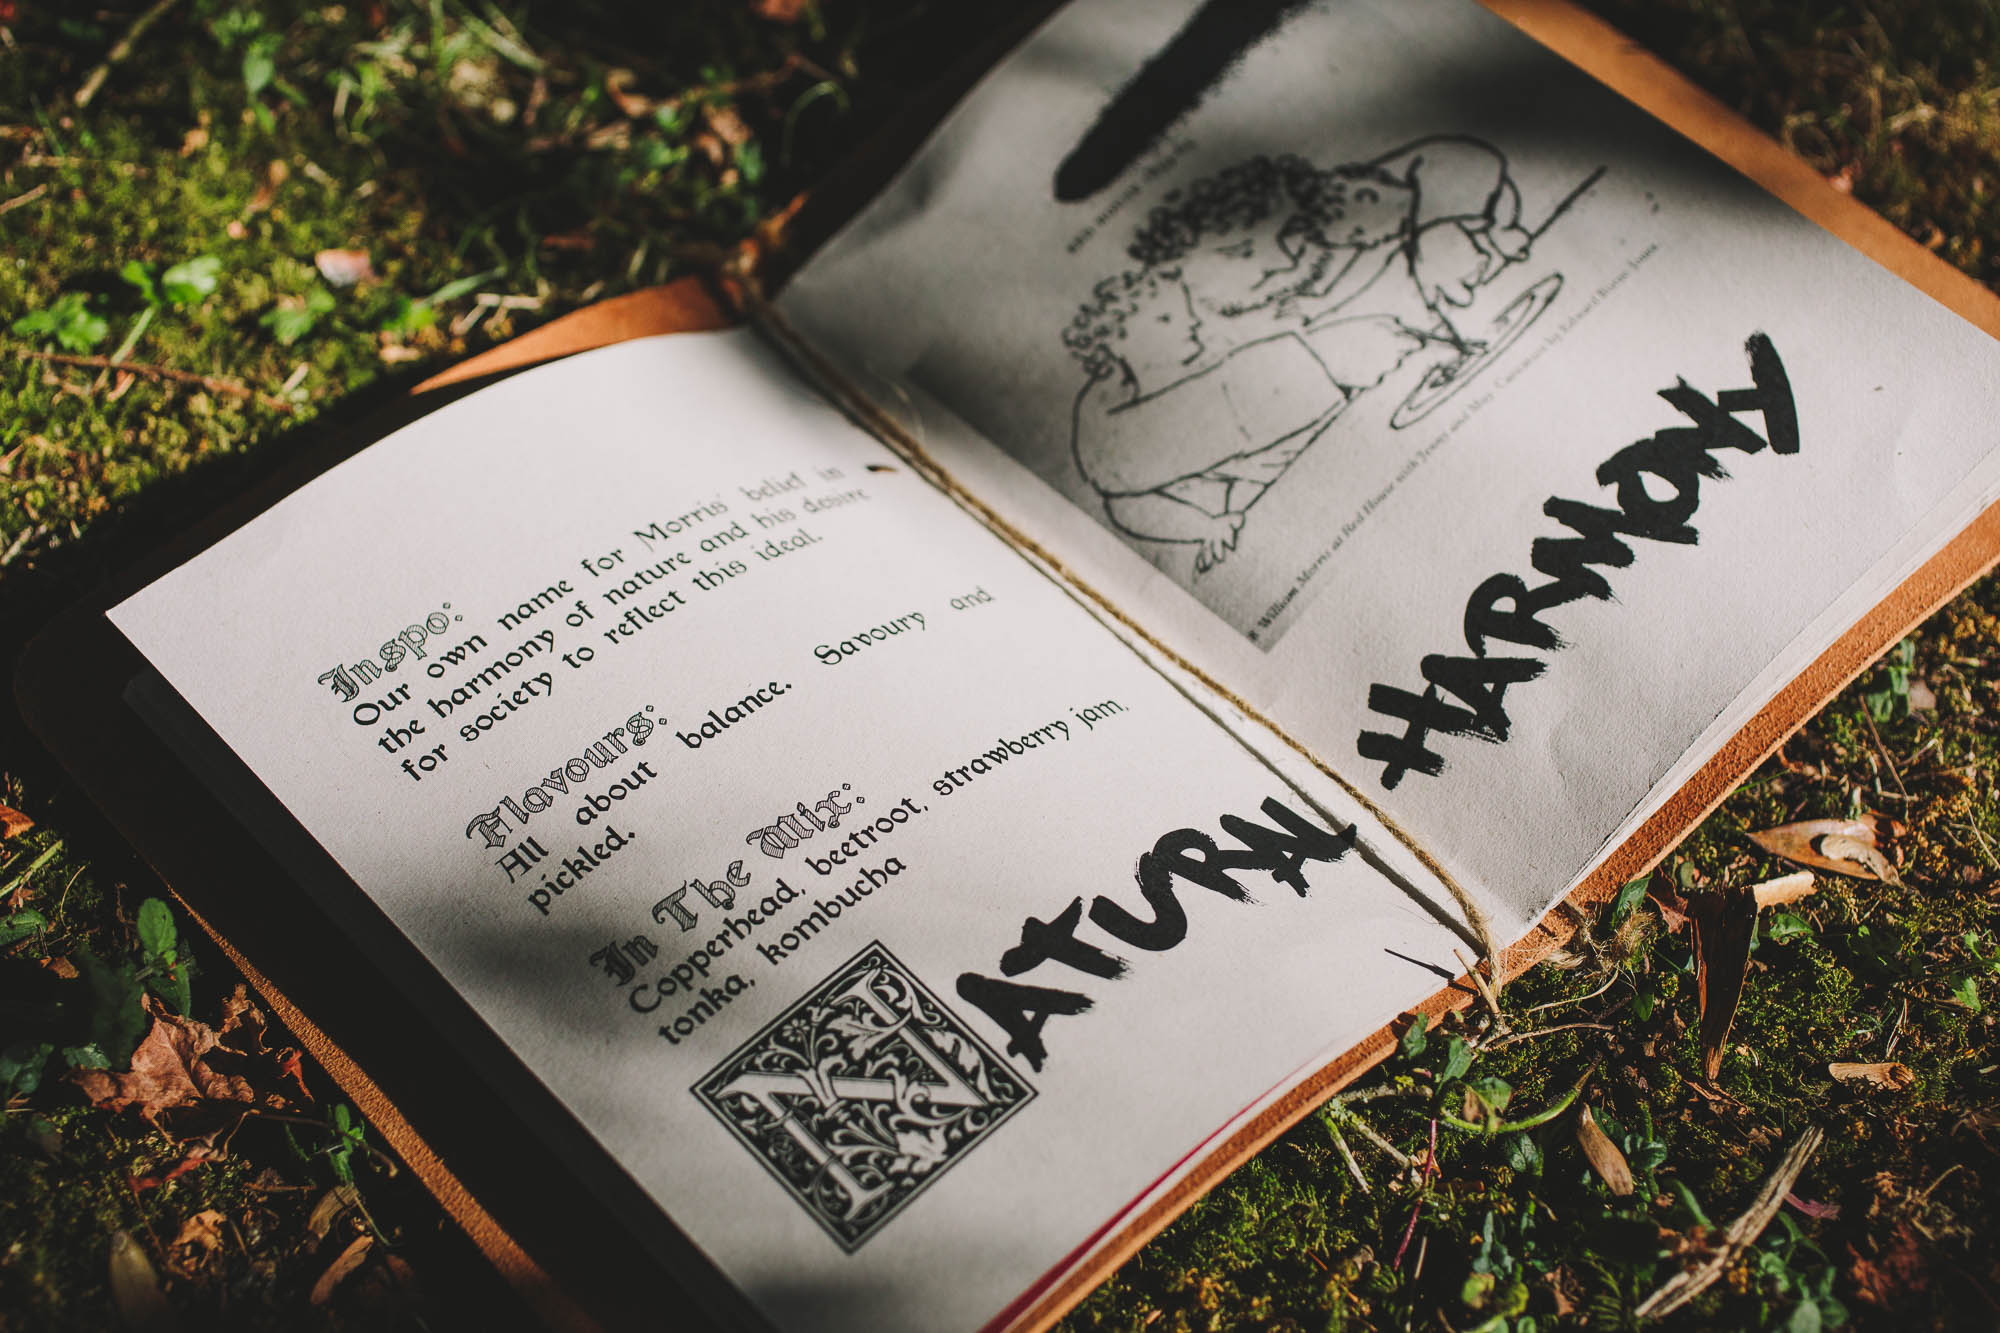 Inspo:
Our own name for Morris' belief in
the harmony of nature and his desire
for society to reflect this ideal.
Flavours:
All about balance. Savoury and
pickled.
In The Mix:
Copperhead, beetroot, strawberry jam,
tonka, kombucha
NATURAL
William Morris at Red House with Jenny and May Cartoon by Edward Burne Jones
HARMONY